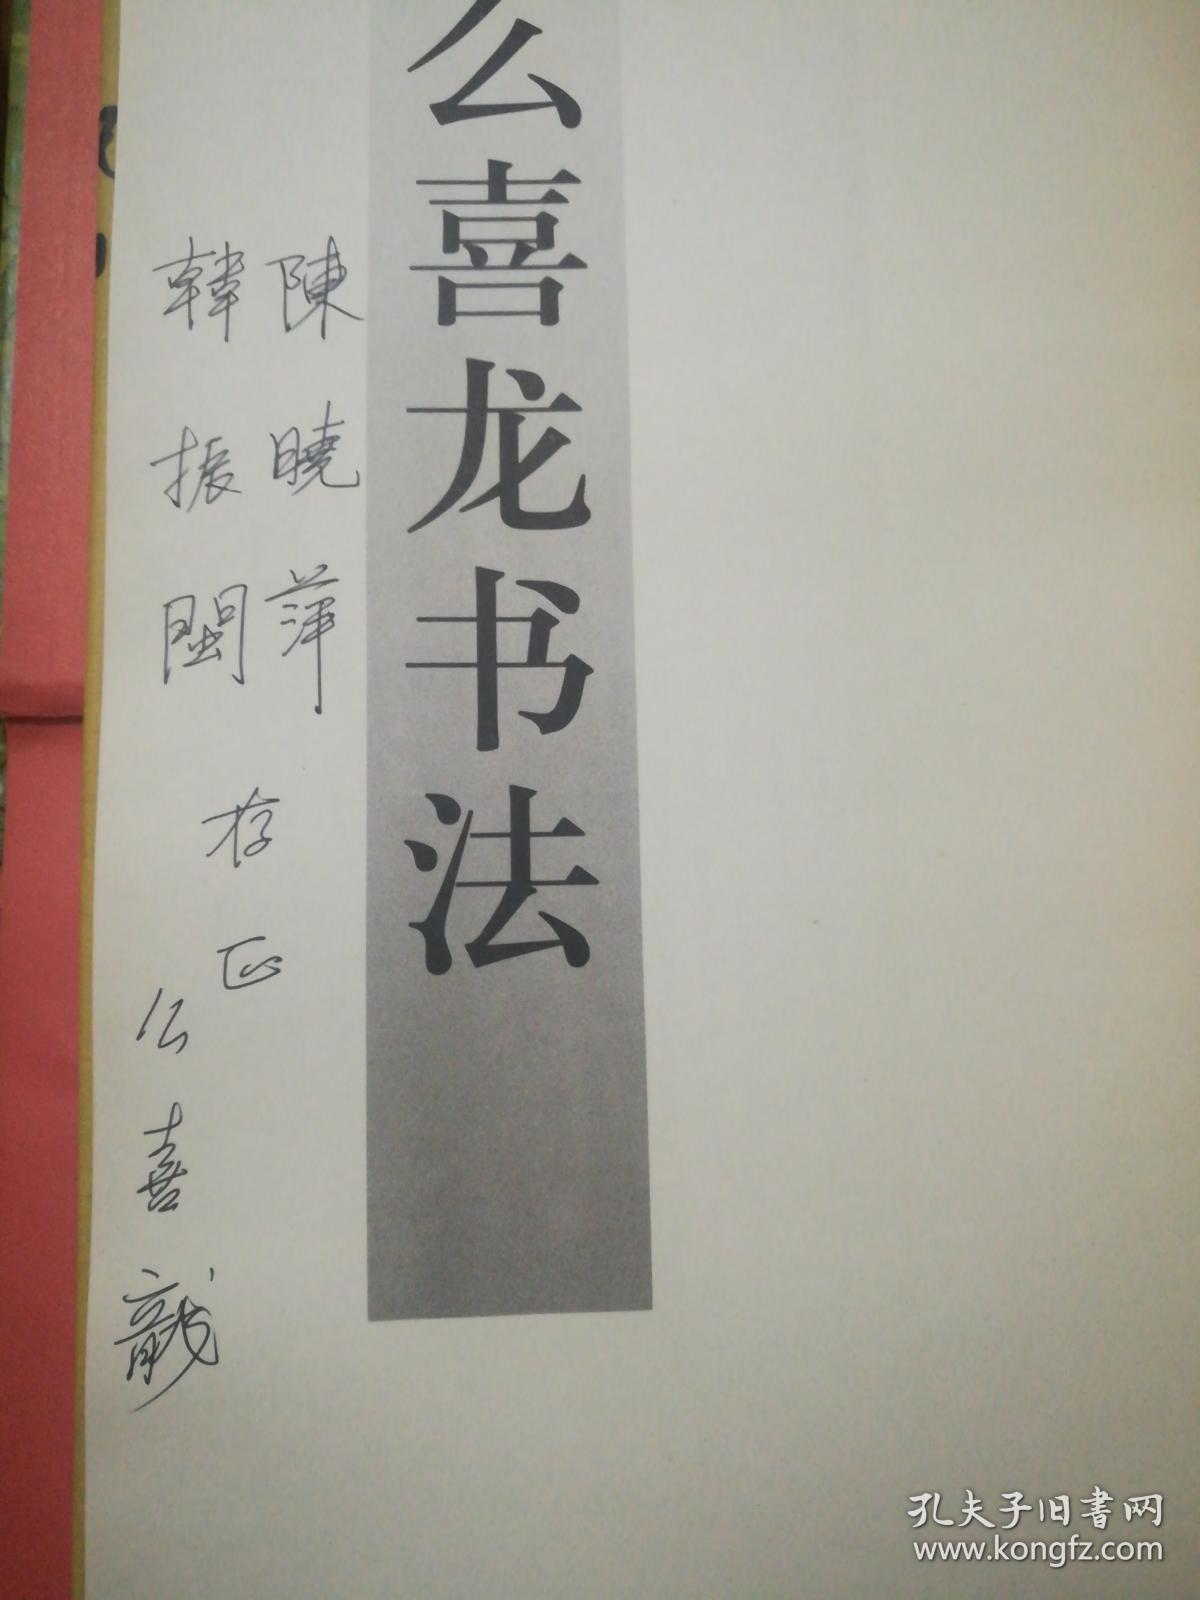 么喜龙书法
陳曉萍
韓振閩
存正
么喜龍
孔夫子旧書网
www.kongfz.com